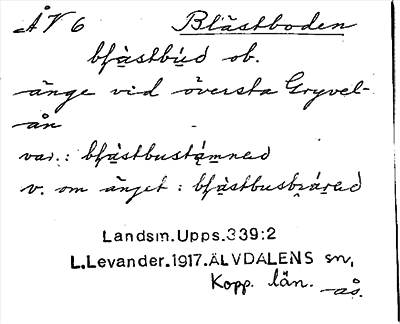 ÅV 6 Blästboden
blästbúd ob.
änge vid översta Gryvel-
ån
var.: blästbustämned
v. om änget: blästbusbråred
Landsm.Upps.339:2
L.Levander.1917.ÄLVDALENS sn,
Kopp. län.
ås.